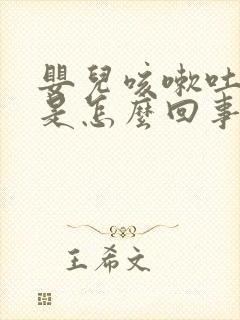 嬰兒咳嗽吐
是怎麼回事
王希文